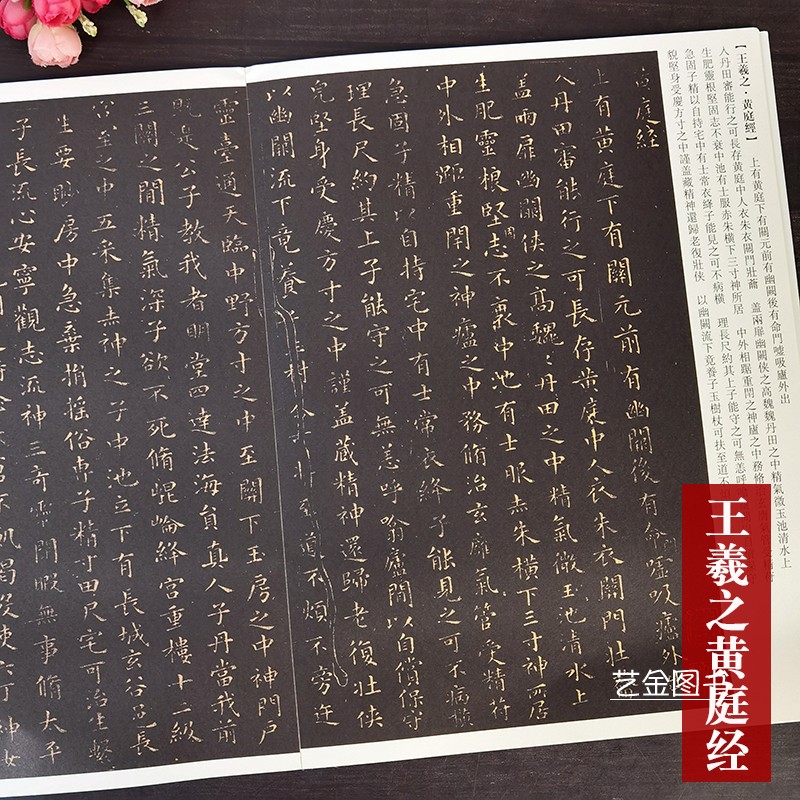 【王羲之·黄庭經】 上有黄庭下有關元前有幽闕後有命門噓吸廬外出
入丹田審能行之可長存黄庭中人衣朱衣關門壯籥 蓋兩扉幽闕俠之高魏魏丹田之中精氣微玉池清水上
生肥靈根堅固志不衰中池有士服赤朱横下三寸神所居 中外相距重閇之神廬之中務脩
急固子精以自持宅中有士常衣絳子能見之可不病横 理長尺約其上子能守之可無恙呼
貌堅身受慶方寸之中謹蓋藏精神還歸老復壯俠 以幽闕流下竟養子玉樹杖可扶至道不
黄庭經
上有黄庭下有關元前有幽闕後有命噓吸廬外
入丹田審能行之可長存黄庭中人衣朱衣關門壯
蓋兩扉幽闕俠之高魏〻丹田之中精氣微玉池清水上
生肥靈根堅志不衰中池有士服赤朱横下三寸神所居
中外相距重閇之神廬之中務脩治玄廱氣管受精符
急固子精以自持宅中有士常衣絳子能見之可不病横
理長尺約其上子能守之可無恙呼噏廬閒以自償保守
皃堅身受慶方寸之中謹盖藏精神還歸老復壯俠
以幽闕流下竟養子玉樹不煩不旁迕
靈臺通天臨中野方寸之中至闕下玉房之中神門户
既是公子教我者明堂四達法海員真人子丹當我前
三關之閒精氣深子欲不死脩崐崘絳宫重樓十二級
宫室之中五采集赤神之子中池立下有長城玄谷邑長
生要眇房中急棄捐摇俗專子精寸田尺宅可治生繫
子長流心安寧觀志流神三奇靈閒暇無事脩太平
王羲之黄庭经
艺金图书